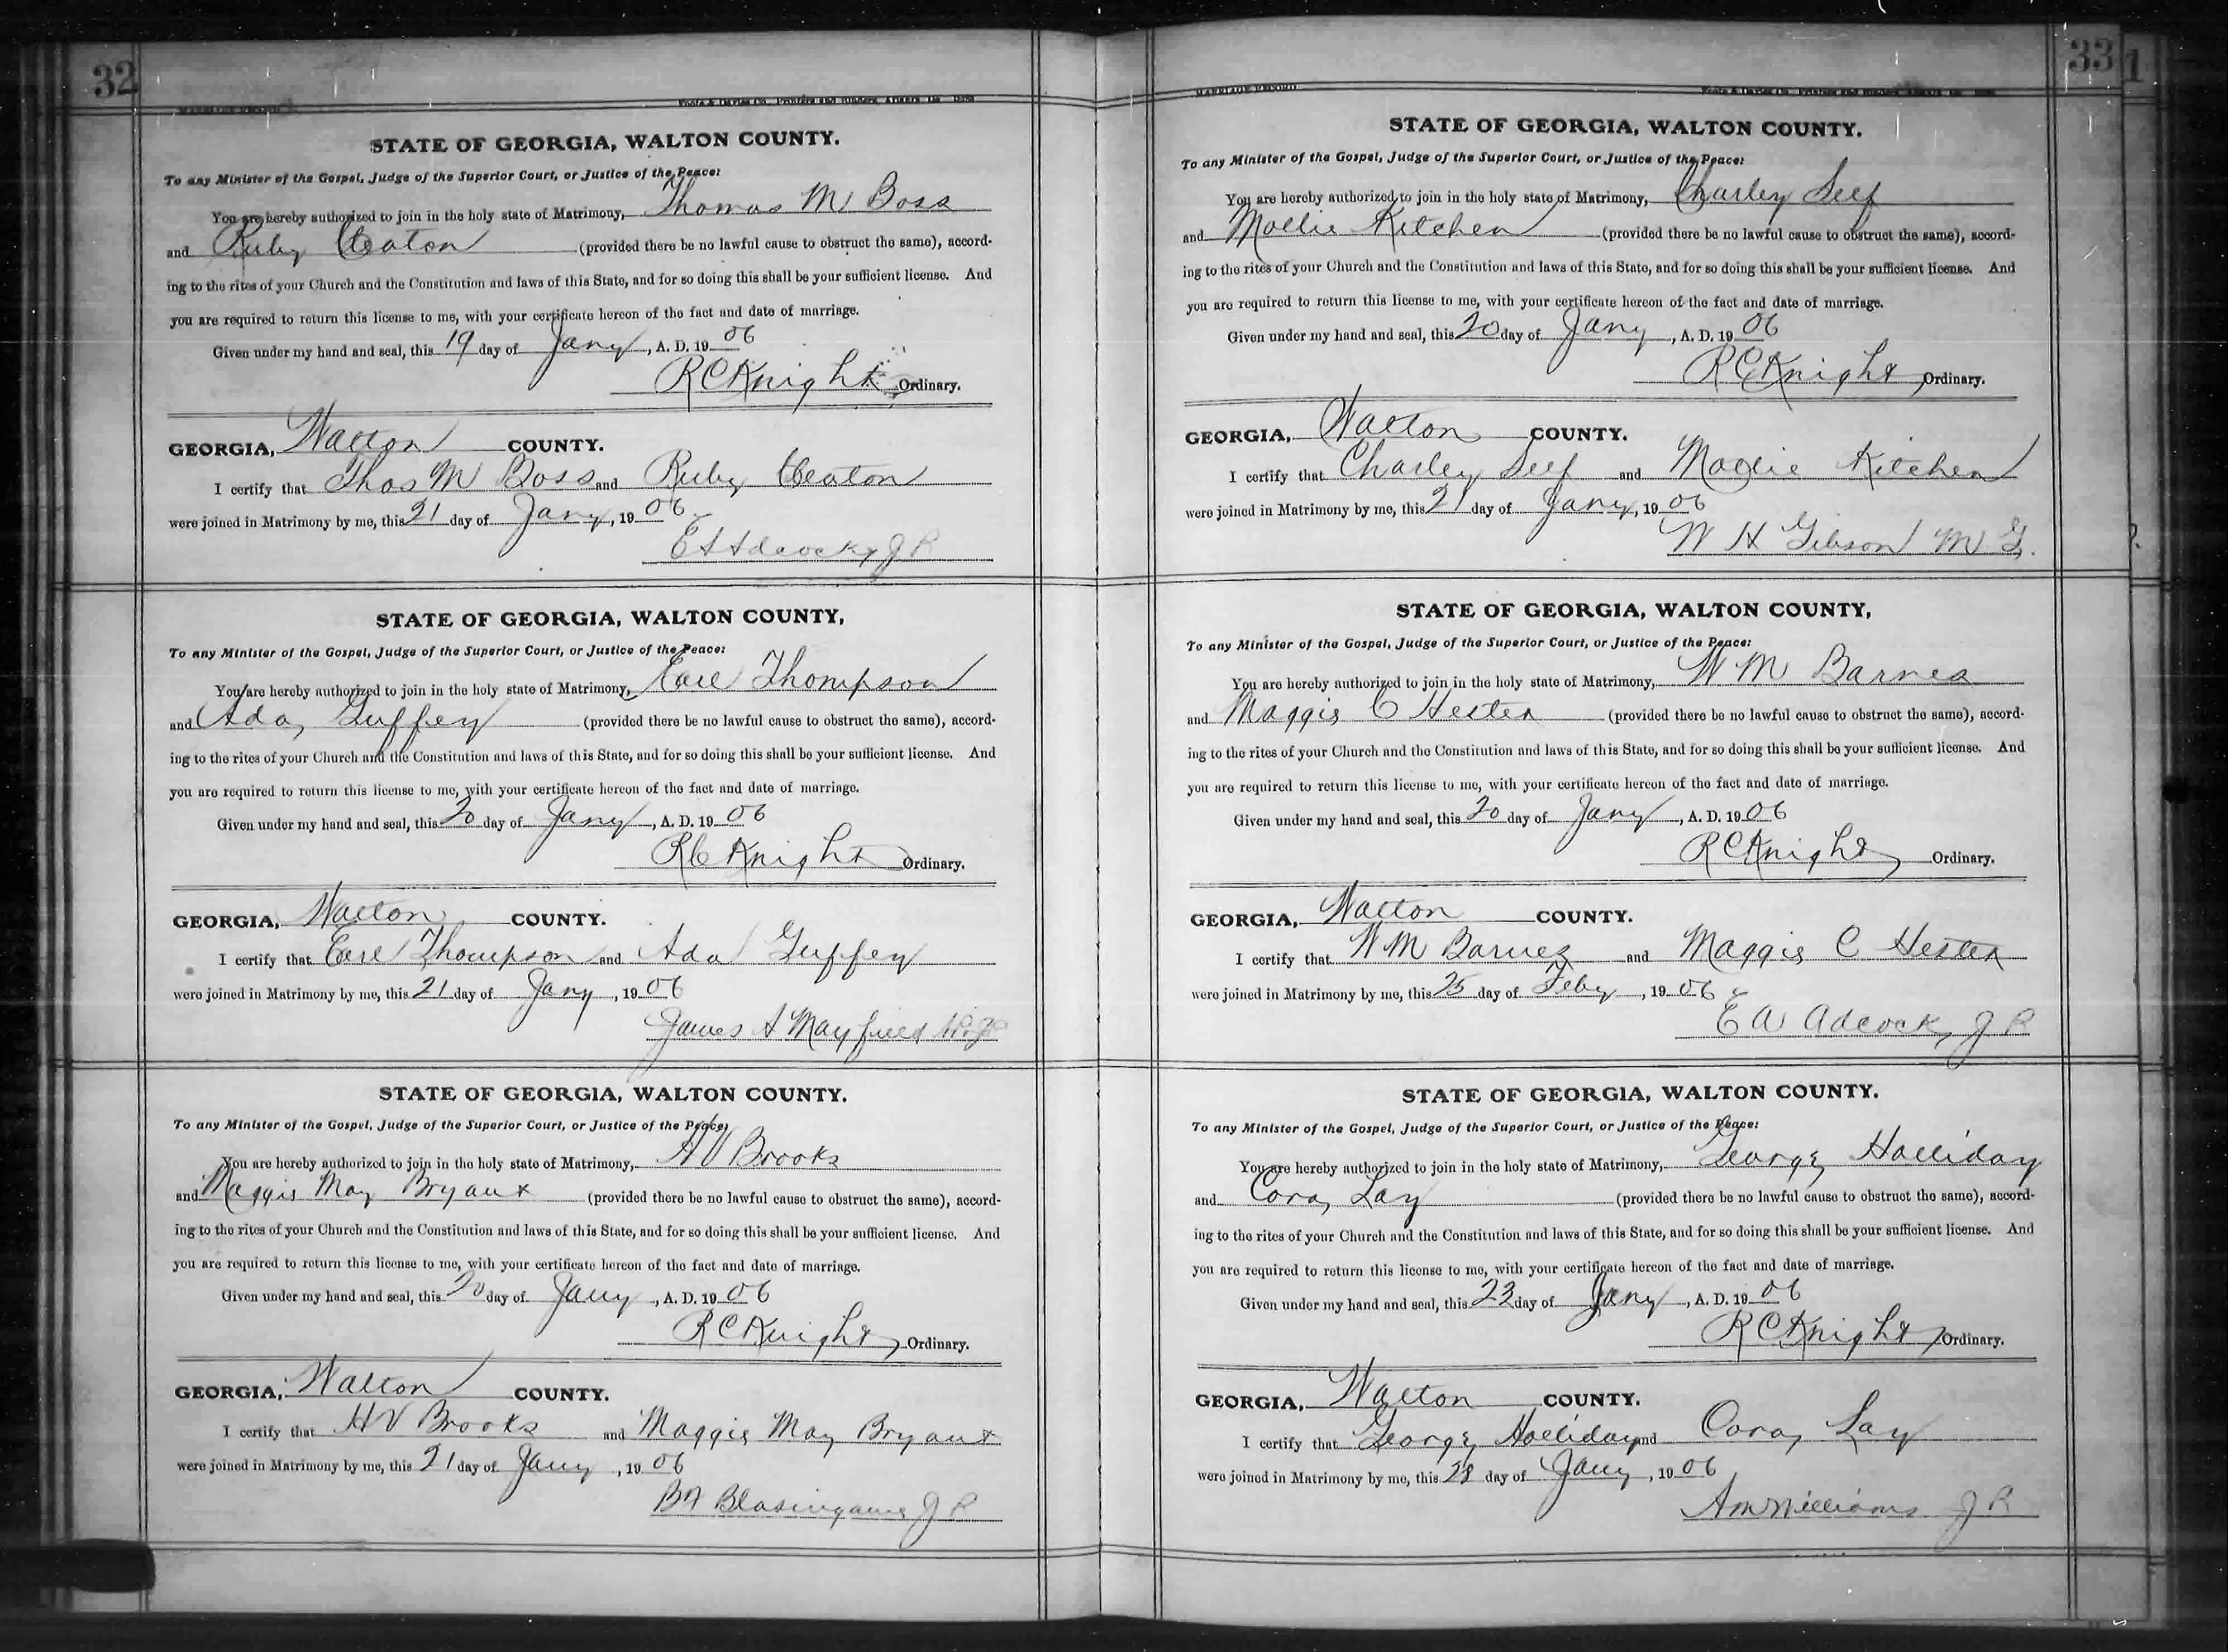 32
MARRIAGE RECORD
Foote & Davies Co., Printers and Binders, Atlanta, Ga.
STATE OF GEORGIA, WALTON COUNTY.
To any Minister of the Gospel, Judge of the Superior Court, or Justice of the Peace:
You are hereby authorized to join in the holy state of Matrimony, Thomas M Boss
and Ruby Cleaton (provided there be no lawful cause to obstruct the same), accord-
ing to the rites of your Church and the Constitution and laws of this State, and for so doing this shall be your sufficient license. And
you are required to return this license to me, with your certificate hereon of the fact and date of marriage.
Given under my hand and seal, this 19 day of Jany, A. D. 1906
R C Knight, Ordinary.
GEORGIA, Walton COUNTY.
I certify that Thos M Boss and Ruby Cleaton
were joined in Matrimony by me, this 21 day of Jany, 1906
E A Adcock, J P
STATE OF GEORGIA, WALTON COUNTY,
To any Minister of the Gospel, Judge of the Superior Court, or Justice of the Peace:
You are hereby authorized to join in the holy state of Matrimony, Earl Thompson
and Ada Guffey (provided there be no lawful cause to obstruct the same), accord-
ing to the rites of your Church and the Constitution and laws of this State, and for so doing this shall be your sufficient license. And
you are required to return this license to me, with your certificate hereon of the fact and date of marriage.
Given under my hand and seal, this 20 day of Jany, A. D. 1906
R C Knight Ordinary.
GEORGIA, Walton COUNTY.
I certify that Earl Thompson and Ada Guffey
were joined in Matrimony by me, this 21 day of Jany, 1906
James A Mayfield
STATE OF GEORGIA, WALTON COUNTY.
To any Minister of the Gospel, Judge of the Superior Court, or Justice of the Peace;
You are hereby authorized to join in the holy state of Matrimony, H V Brooks
and Maggie May Bryant (provided there be no lawful cause to obstruct the same), accord-
ing to the rites of your Church and the Constitution and laws of this State, and for so doing this shall be your sufficient license. And
you are required to return this license to me, with your certificate hereon of the fact and date of marriage.
Given under my hand and seal, this 20 day of Jany, A. D. 1906
R C Knight, Ordinary.
GEORGIA, Walton COUNTY.
I certify that H V Brooks and Maggie May Bryant
were joined in Matrimony by me, this 21 day of Jany, 1906
Blasingame J P
33
1
MARRIAGE RECORD
Foote & Davies Co., Printers and Binders, Atlanta, Ga.
STATE OF GEORGIA, WALTON COUNTY.
To any Minister of the Gospel, Judge of the Superior Court, or Justice of the Peace:
You are hereby authorized to join in the holy state of Matrimony, Charley Self
and Mollie Kitchen (provided there be no lawful cause to obstruct the same), accord-
ing to the rites of your Church and the Constitution and laws of this State, and for so doing this shall be your sufficient license. And
you are required to return this license to me, with your certificate hereon of the fact and date of marriage.
Given under my hand and seal, this 20 day of Jany, A. D. 1906
R C Knight, Ordinary.
GEORGIA, Walton COUNTY.
I certify that Charley Self and Mollie Kitchen
were joined in Matrimony by me, this 21 day of Jany, 1906
W H Gibson M G.
STATE OF GEORGIA, WALTON COUNTY,
To any Minister of the Gospel, Judge of the Superior Court, or Justice of the Peace:
You are hereby authorized to join in the holy state of Matrimony, W M Barnes
and Maggie C Hester (provided there be no lawful cause to obstruct the same), accord-
ing to the rites of your Church and the Constitution and laws of this State, and for so doing this shall be your sufficient license. And
you are required to return this license to me, with your certificate hereon of the fact and date of marriage.
Given under my hand and seal, this 20 day of Jany, A. D. 1906
R C Knight, Ordinary.
GEORGIA, Walton COUNTY.
I certify that W M Barnes and Maggie C Hester
were joined in Matrimony by me, this 25 day of Feby, 1906
E A Adcock, J P
STATE OF GEORGIA, WALTON COUNTY.
To any Minister of the Gospel, Judge of the Superior Court, or Justice of the Peace:
You are hereby authorized to join in the holy state of Matrimony, George Holliday
and Cora Lay (provided there be no lawful cause to obstruct the same), accord-
ing to the rites of your Church and the Constitution and laws of this State, and for so doing this shall be your sufficient license. And
you are required to return this license to me, with your certificate hereon of the fact and date of marriage.
Given under my hand and seal, this 23 day of Jany, A. D. 1906
R C Knight, Ordinary.
GEORGIA, Walton COUNTY.
I certify that George Holliday and Cora Lay
were joined in Matrimony by me, this 28 day of Jany, 1906
A M Williams J P